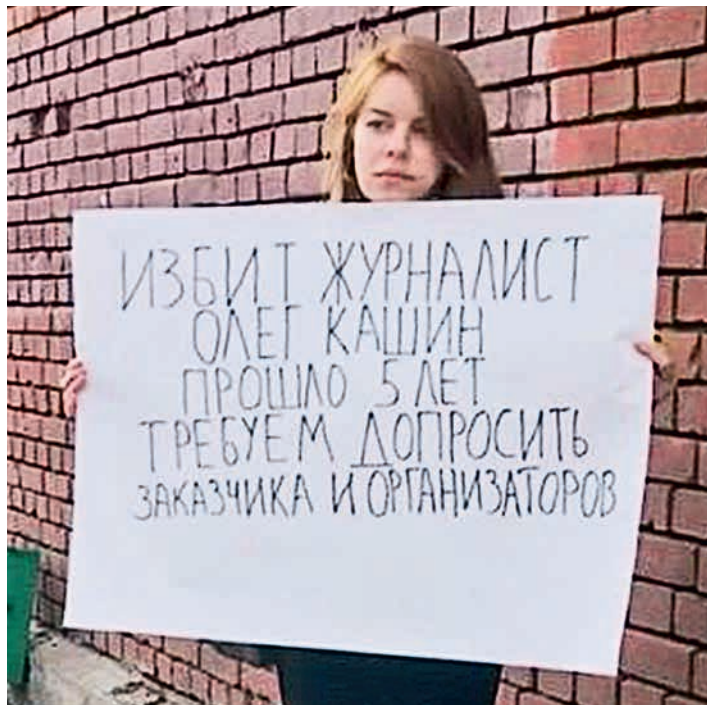 ИЗБИТ ЖУРНАЛИСТ
ОЛЕГ КАШИН
ПРОШЛО 5 ЛЕТ
ТРЕБУЕМ ДОПРОСИТЬ
ЗАКАЗЧИКА И ОРГАНИЗАТОРОВ